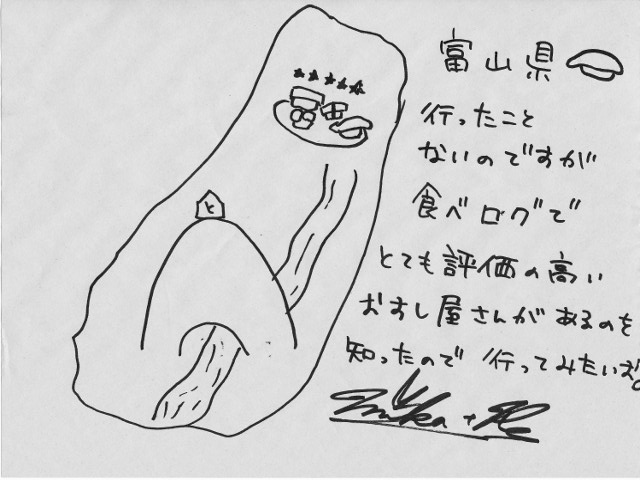 富山県
行ったこと
ないのですが
食べログで
とても評価の高い
おすし屋さんがあるのを
知ったので行ってみたいぞ。
と